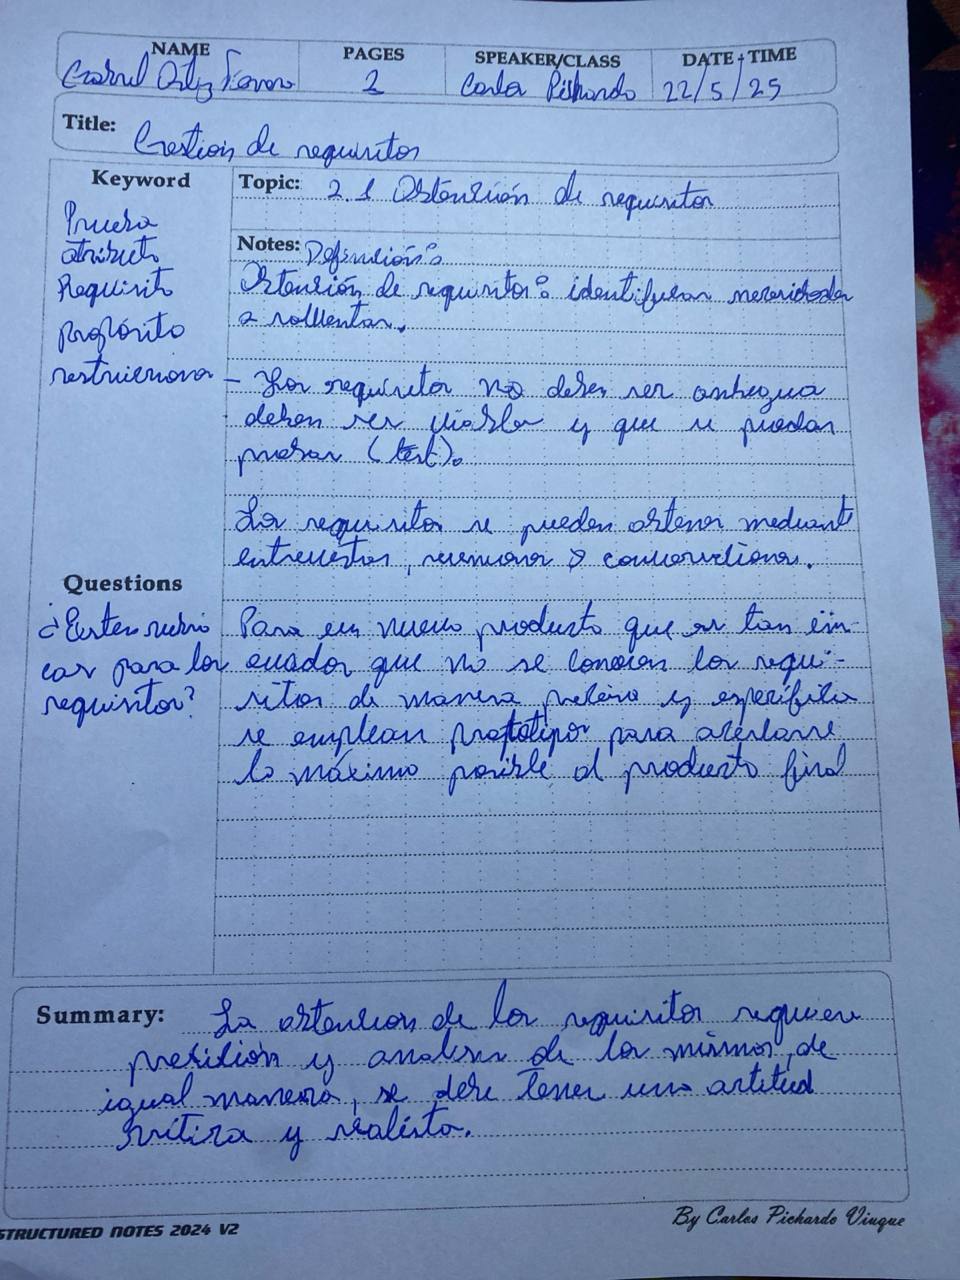 NAME
PAGES
SPEAKER/CLASS
DATE + TIME
Ortiz
2
Carlos Pichardo
22/5/25
Title:
Gestion de requisitos
Keyword
Topic: 2.1 Obtención de requisitos
Prueba
atributo
Requisito
proposito
restricciones
Notes: Definición:
Obtención de requisitos: identifican necesidades
a solventar.
- Los requisitos no deben ser ambegua
deben ser viable y que se puedan
probar (test).
Los requisitos se pueden obtener mediante
entrevistas, reuniones o conversaciones.
Questions
¿Existen rubri
cas para los
requisitos?
Para un nuevo producto que es tan inn-
ovador que no se conocen los requi-
sitos de manera y especifica
se emplean prototipos para acercarse
lo máximo posible al producto final
Summary: La obtencion de los requisitos requiere
precisión y analisis de los mismos, de
igual manera, se debe tener una actitud
critica y realista.
STRUCTURED NOTES 2024 V2
By Carlos Pichardo Viuque